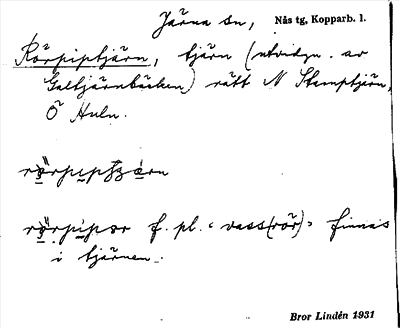 Järna sn, Nås tg, Kopparb. l.
Rörpiptjärn, tjärn (utvidgn. av
Galtjärnbäcken) rätt N Stamptjärn,
Ö Huln.
i tjärnen.
rörpipər f. pl. "vass(rör)" finnas
Bror Lindén 1931